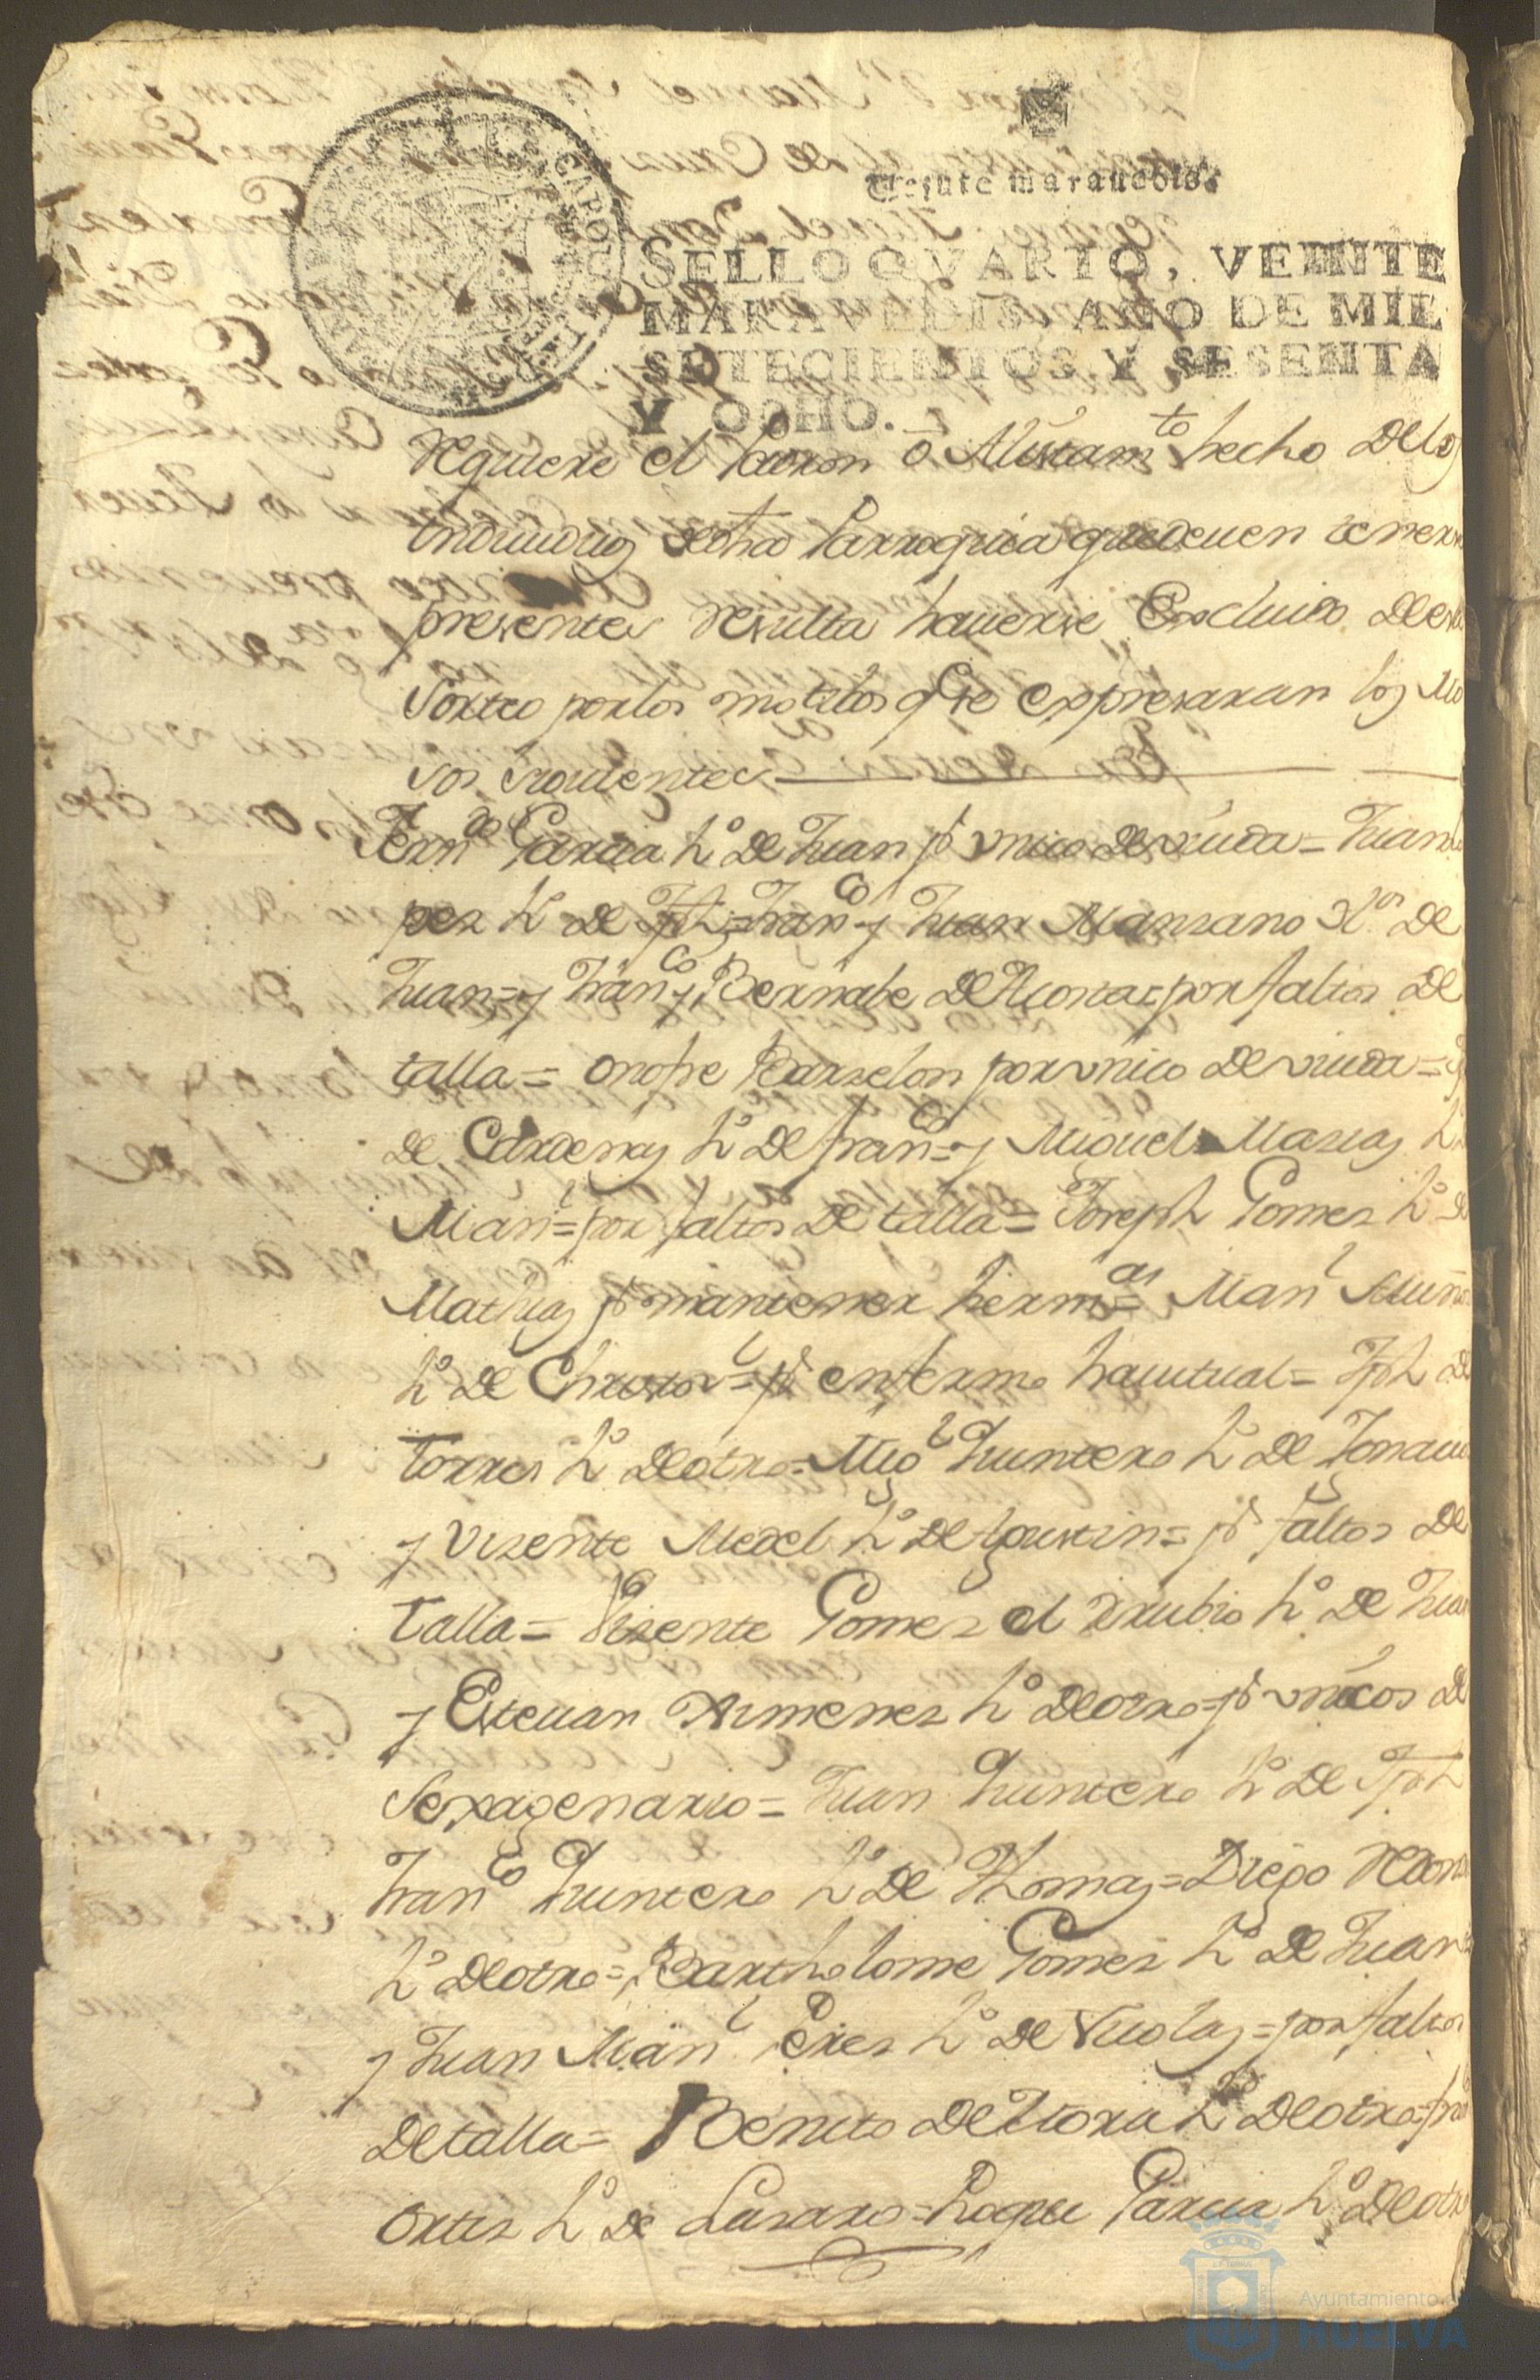 Veinte maravedis.
SELLO QVARTO, VEINTE
MARAVEDIS, AÑO DE MIL
SETECIENTOS Y SESENTA
Y OCHO.
requiere el Padron ô Alistam.to hecho delos
Yndividuos dedha Parroquia quedeuen tenerse
presentes resulta hauerse Excluido deeste
Sorteo porlos motibos q̃ se expresaran los Mo
sos siguientes
Fern.do Garcia h.o de Juan pr vnico deviuda = Juan
pez h.o de Jph = Fran.co y Juan Mansano h.os de
Juan = y Fran.co Bernabe de = por faltos de
talla = Onofre Barselon por vnico de viuda =
de Cardenas h.o de fran.co = y Miguel Masias h.o
Man.l = por faltos de talla = Joseph Gomez h.o de
Mathias pr mantener herm.as = Man.l Muñ
h.o de Christov.l = pr enfermo hauitual = Jph de
torres h.o deotro = Mig.l Quintero h.o de Ignacio
y Visente Medel h.o de Agustin = pr faltos de
talla = Visente Gomez el Rrubio h.o de Jua
y Esteuan Ximenez h.o deotro = pr vnicos de
Sexagenario = Juan Quintero h.o de Jph
Fran.co Quintero h.o de Thomas = Diego Redon
h.o deotro = Bartholome Gomez h.o de Juan
y Juan Man.l Peres h.o de Nicolas = por faltos
detalla = Benito de h.o deotro =
Ortiz h.o de Lasaro = Roque Garcia h.o deotro
Ayuntamiento de
HUELVA